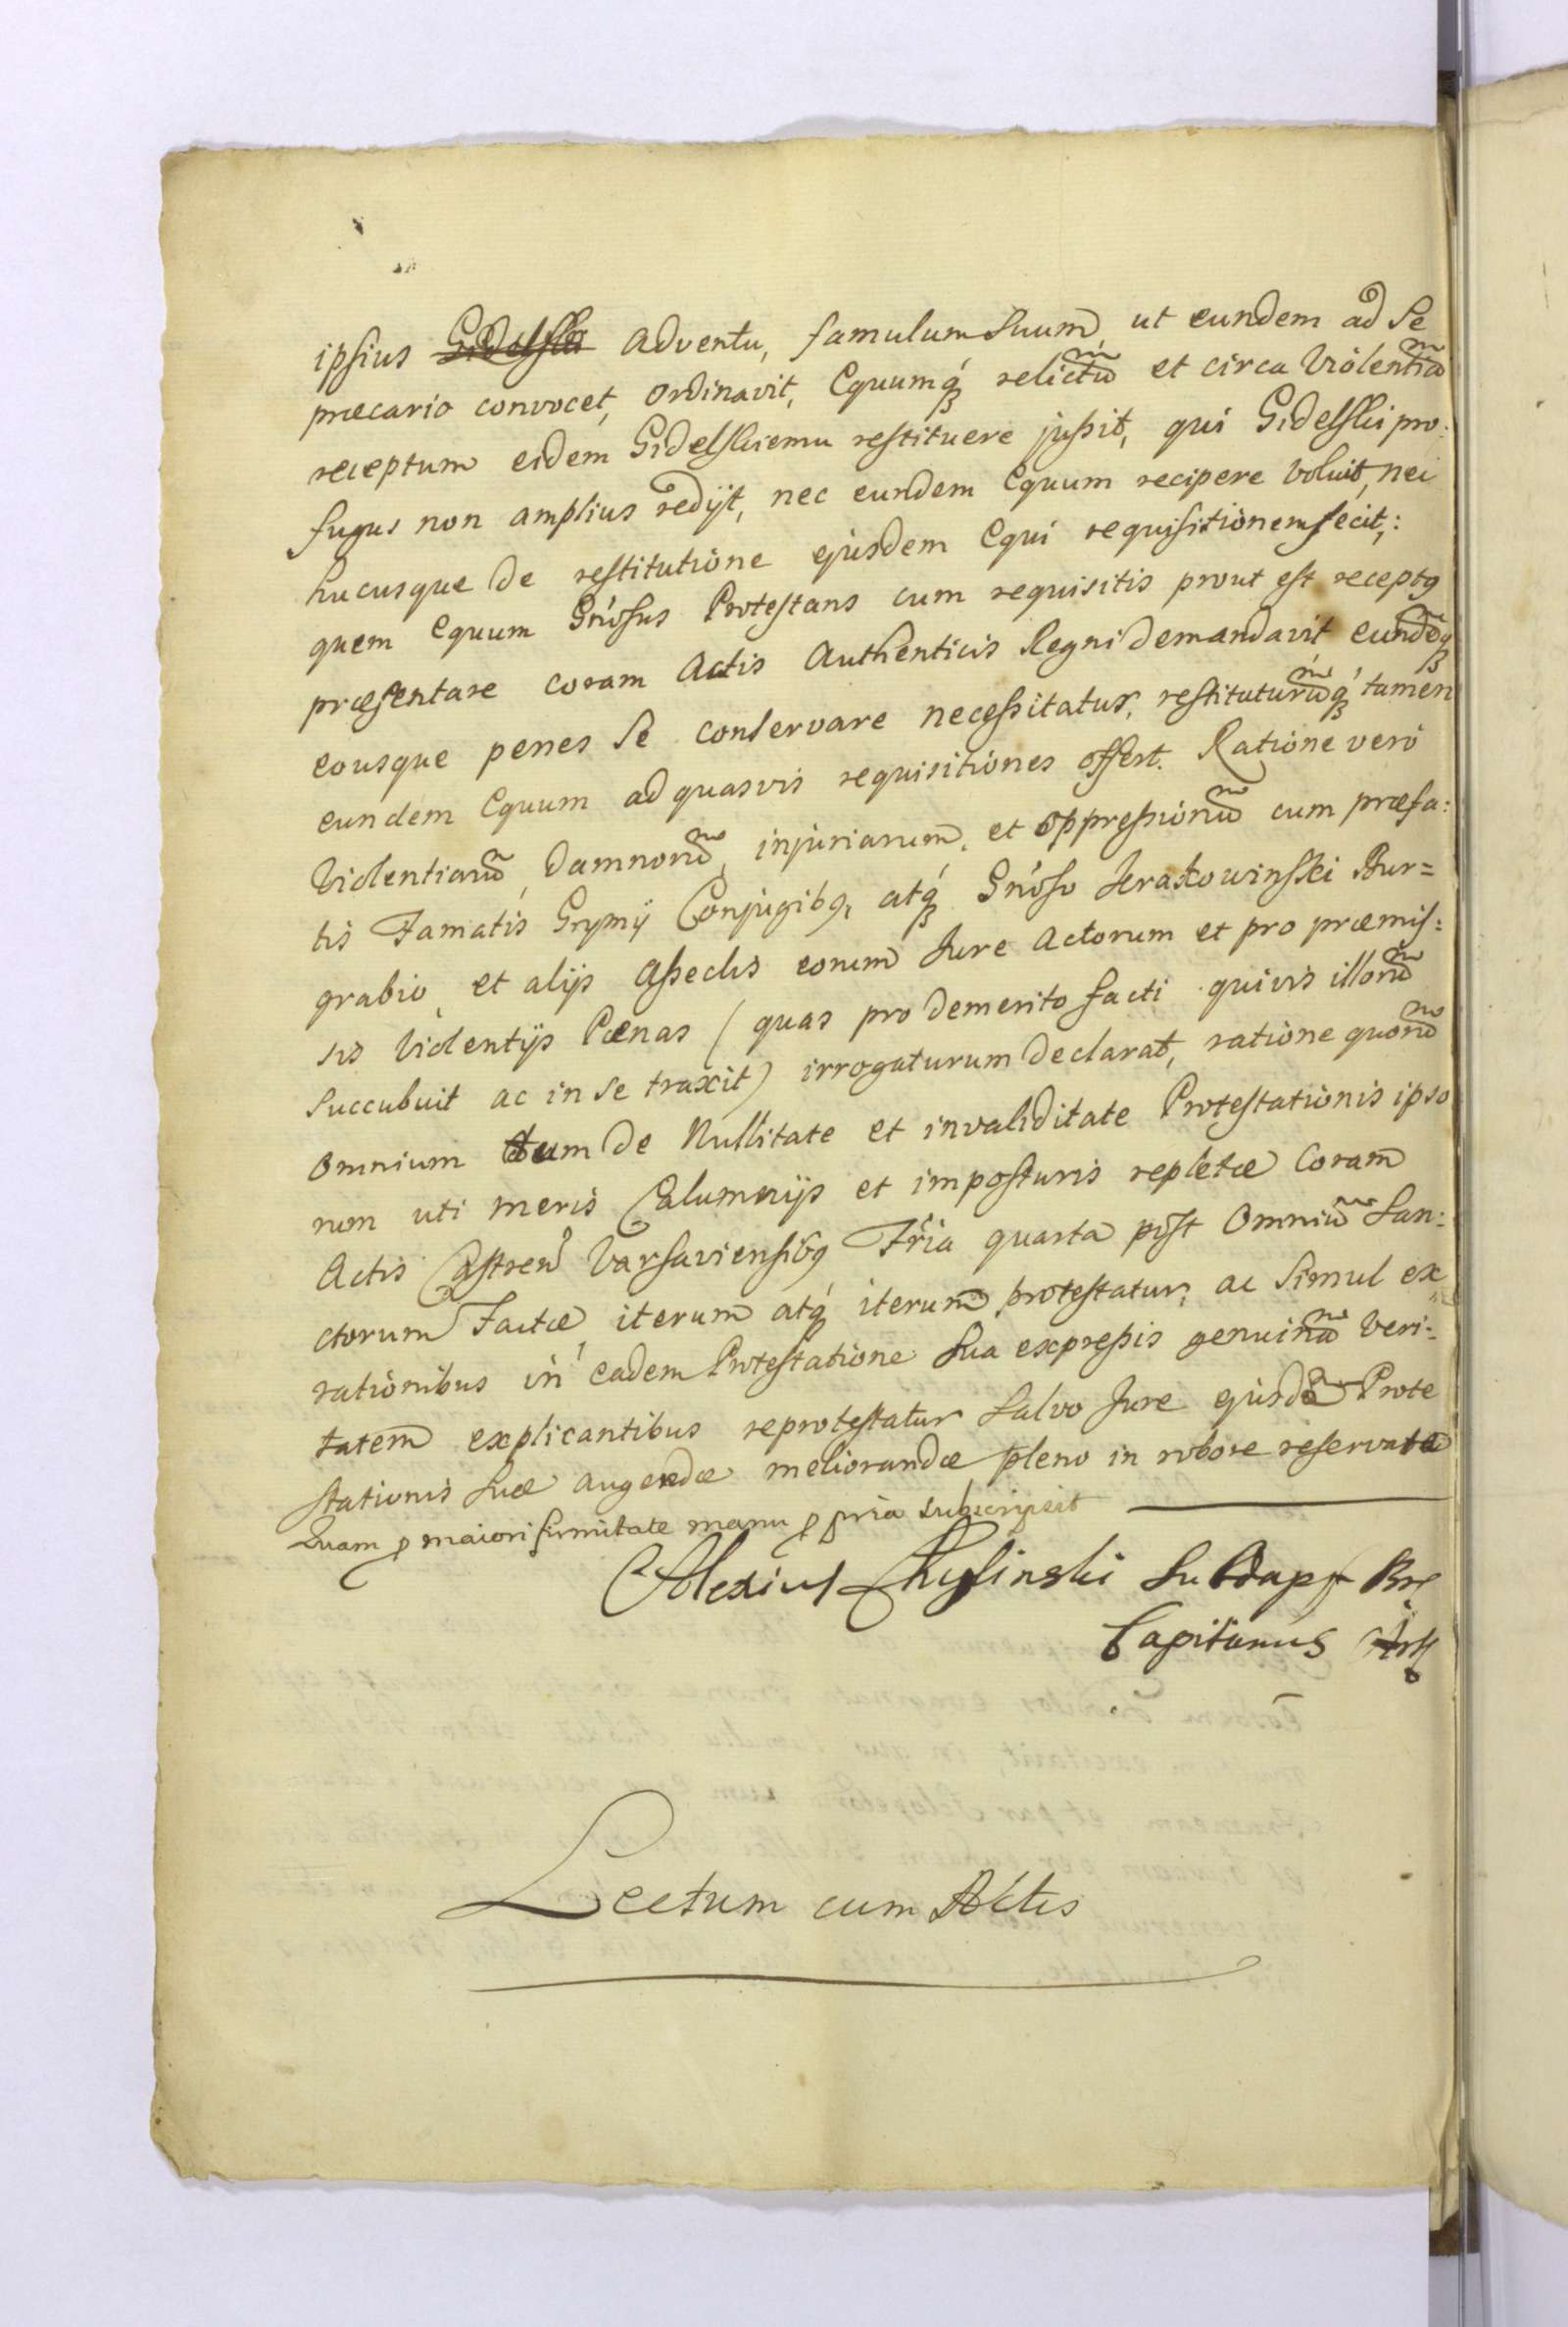 ipsius Gidelski adventu, famulum suum, ut eundem ad se
præcario convocet, ordinavit, Equumq́ relictũ et circa Violentiã
receptum eidem Gidelskiemu restituere jussit, qui Gidelski pro:
fugus non amplius redijt, nec eundem Equum recipere voluit, nec
hucusque de restitutione ejusdem Equi requisitionem fecit;:
quem Equum Gñosus Protestans cum requisitis prout est receptg
præsentare coram Actis Authenticis Regni demandavit eundẽq
eousque penes se conservare necessitatur, restituturũq́ tamen
eundem Equum ad quasvis requisitiones offert. Ratione verò
Violentiarũ, Damnorũ, injuriarum, et oppressionũ cum præfa:
tis Famatis Grymij Conjugibg, atq́ Gñoso Burs=
grabio, et alijs Asseclis eorum Jure Actorum et pro præmis:
sis Violentijs Pœnas (quas pro demerito facti quivis illorũ
succubuit ac in se traxit) irrogaturum declarat, ratione quorũ
omnium tum de Nullitate et invaliditate Protestationis ipso
rum uti meris Calumnijs et imposturis repletæ Coram
Actis Castreñ Varsaviensibg Fr̃ia quarta post Omniũ San:
ctorum Factæ, iterum atq́ iterum protestatur, ac simul ex
rationibus in eadem Protestatione sua expressis genuinã Veri:
tatem explicantibus reprotestatur salvo Jure ejusdẽ Prote
stationis suæ augendæ meliorandæ pleno in robore reservato
Quam p maiori firmitate manu p pria subscripsit
Alexius Subdapf
Capitanus
Lectum cum Actis